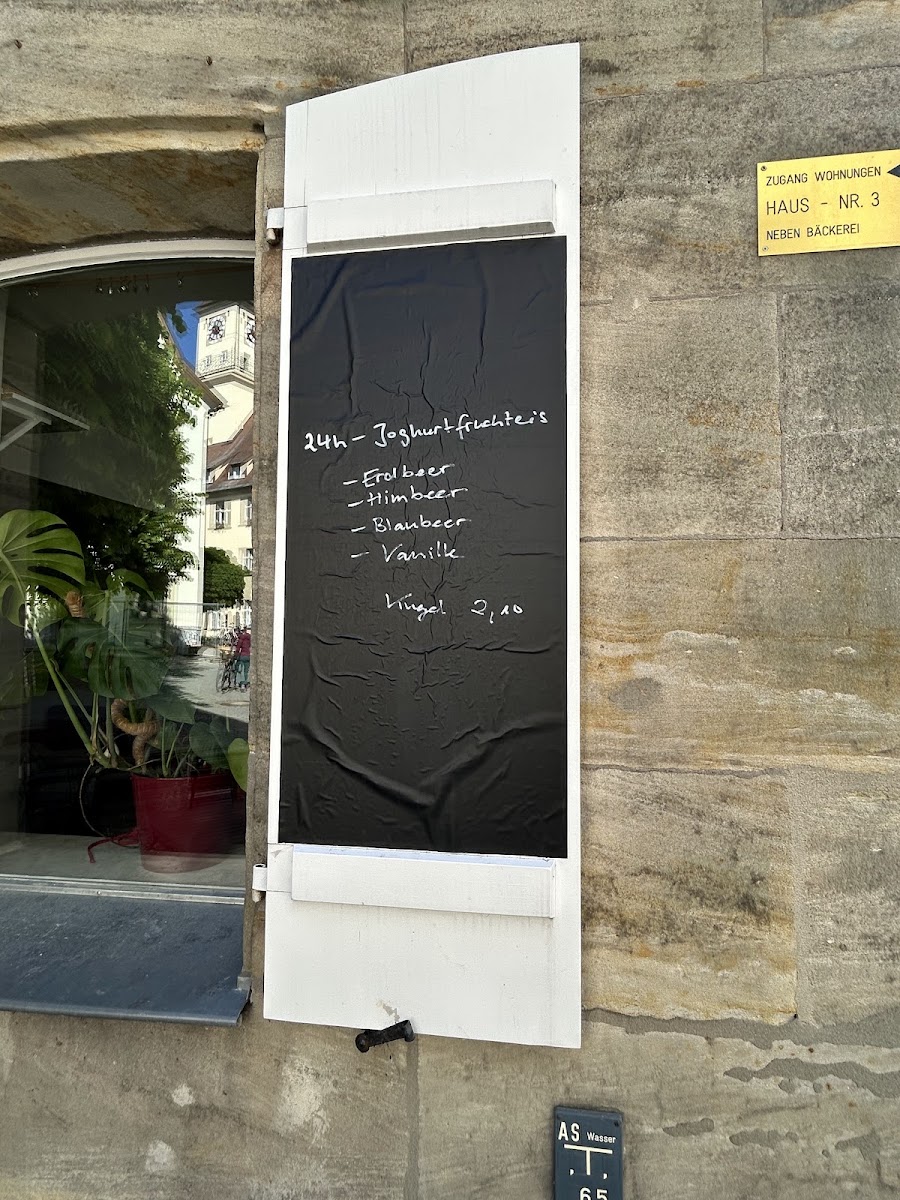 24h - Joghurtfruchteis
- Erdbeer
- Himbeer
- Blaubeer
- Vanille
Kugel 2,10
ZUGANG WOHNUNGEN
HAUS - NR. 3
NEBEN BÄCKEREI
AS Wasser
, ,
65